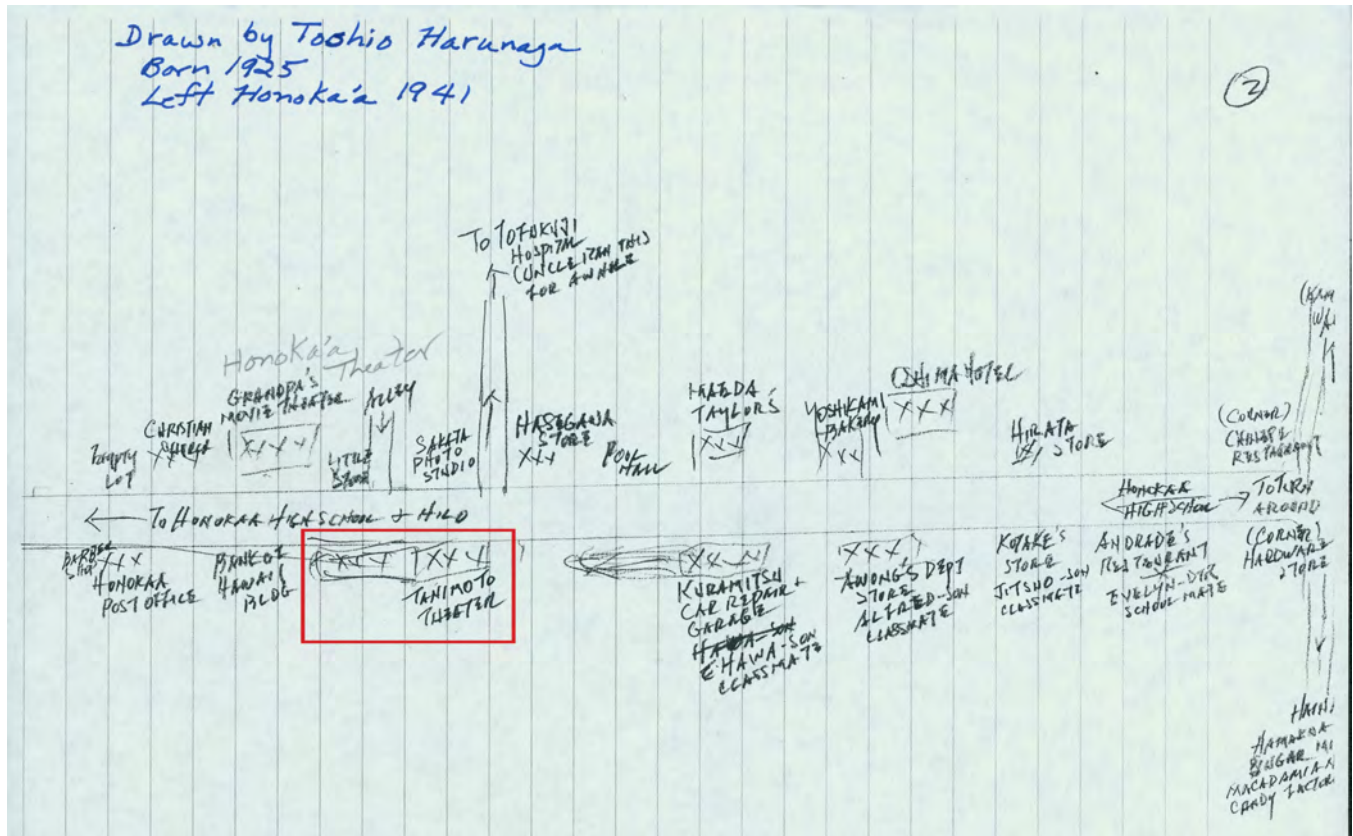 Drawn by Toshio Harunaga
Born 1925
Left Honoka'a 1941
2
To TOFUKUJI
HOSPITAL
(UNCLE RAN THIS
FOR AWHILE
Honoka'a
Theater
GRANDPA'S
MOVIE THEATER
ALLEY
CHRISTIAN
CHURCH
XXX
EMPTY
LOT
XXXX
LITTLE
STORE
SAKATA
PHOTO
STUDIO
HASEGAWA
STORE
XXX
POOL
HALL
MAEDA
TAYLOR'S
XXX
YOSHIKAMI
BAKERY
XXX
OSHIMA HOTEL
XXX
HIRATA
STORE
(CORNER)
CHINESE
RESTAURANT
← TO HONOKAA HIGH SCHOOL & HILO
HONOKAA
HIGH SCHOOL
TO TURN
AROUND
BARBER
SHOP
XXX
HONOKAA
POST OFFICE
BANK OF
HAWAII
BLDG
XXX
XXX
TANIMOTO
THEETER
XXXX
KURAMITSU
CAR REPAIR +
GARAGE
EHAWA-SON
CLASSMATE
XXX
AWONG'S DEPT
STORE
ALFRED-SON
CLASSMATE
KOTAKE'S
STORE
JITSUO-SON
CLASSMATE
ANDRADE'S
RESTAURANT
EVELYN-DTR
SCHOOL MATE
(CORNER)
HARDWARE
STORE
HAMAKUA
SUGAR MI
MACADAMIA N
CANDY FACTOR